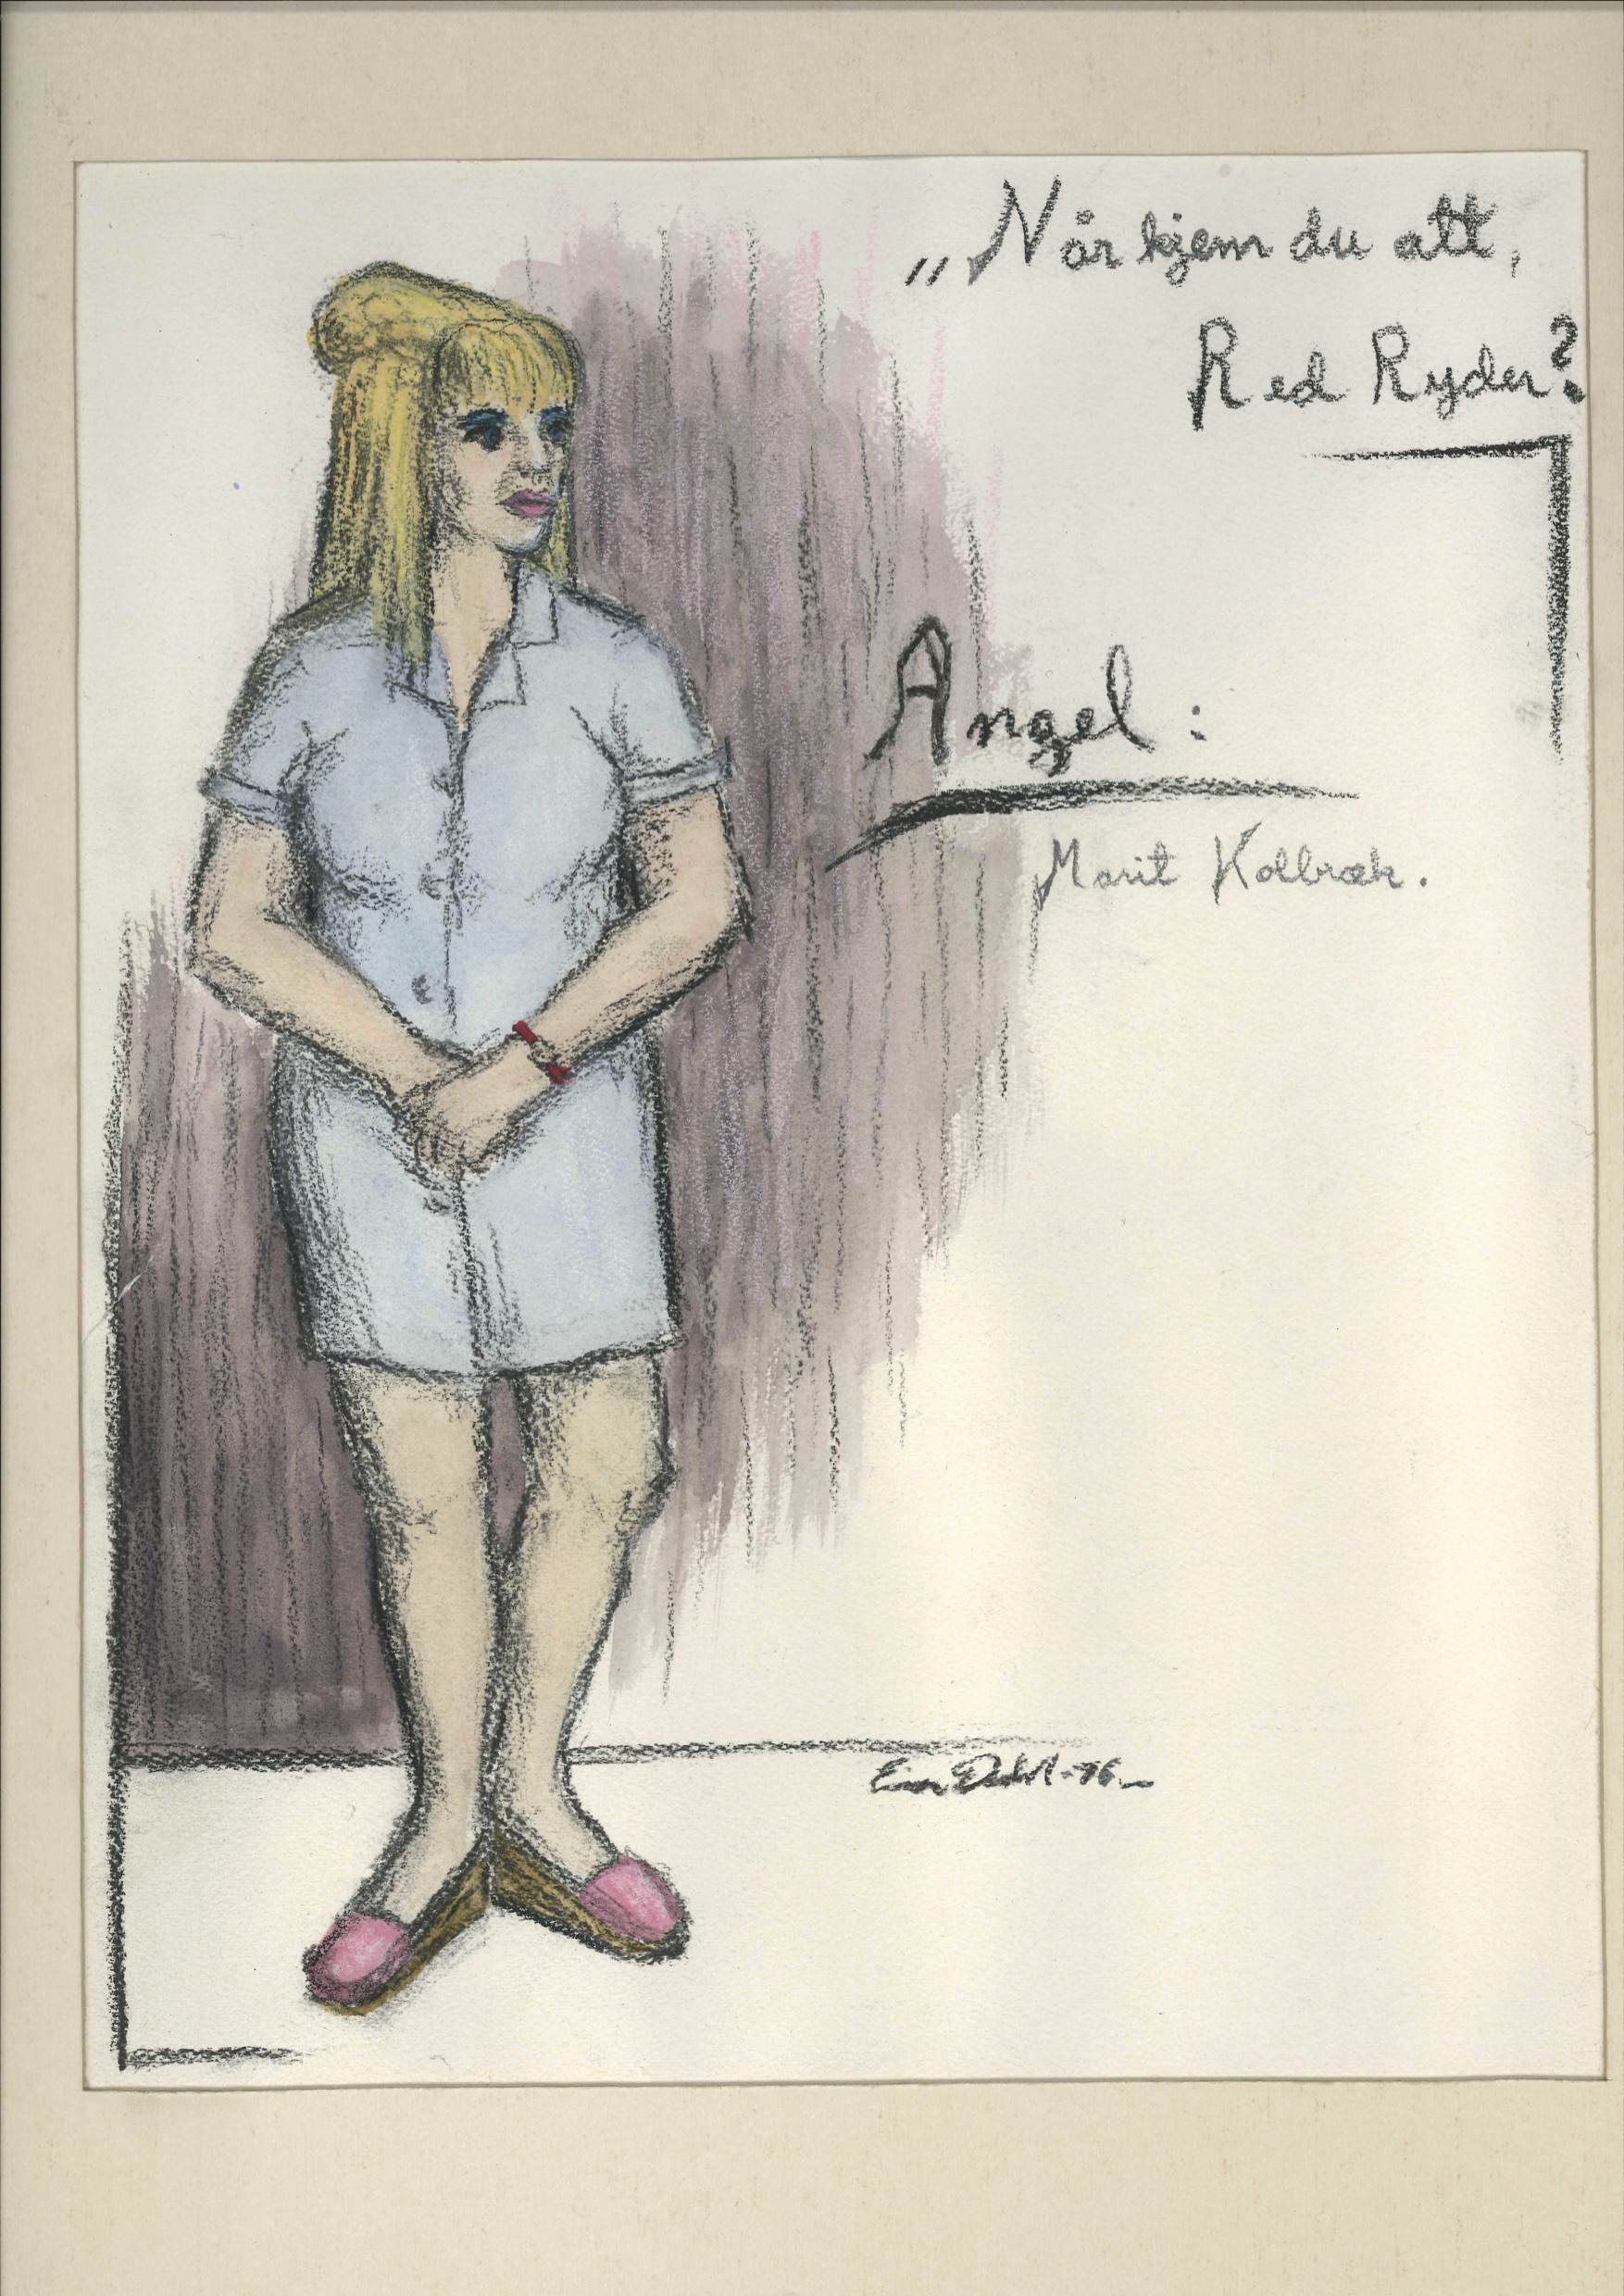 „Når kjem du att,
Red Ryder?
Angel:
Marit Kolbræk.
-76